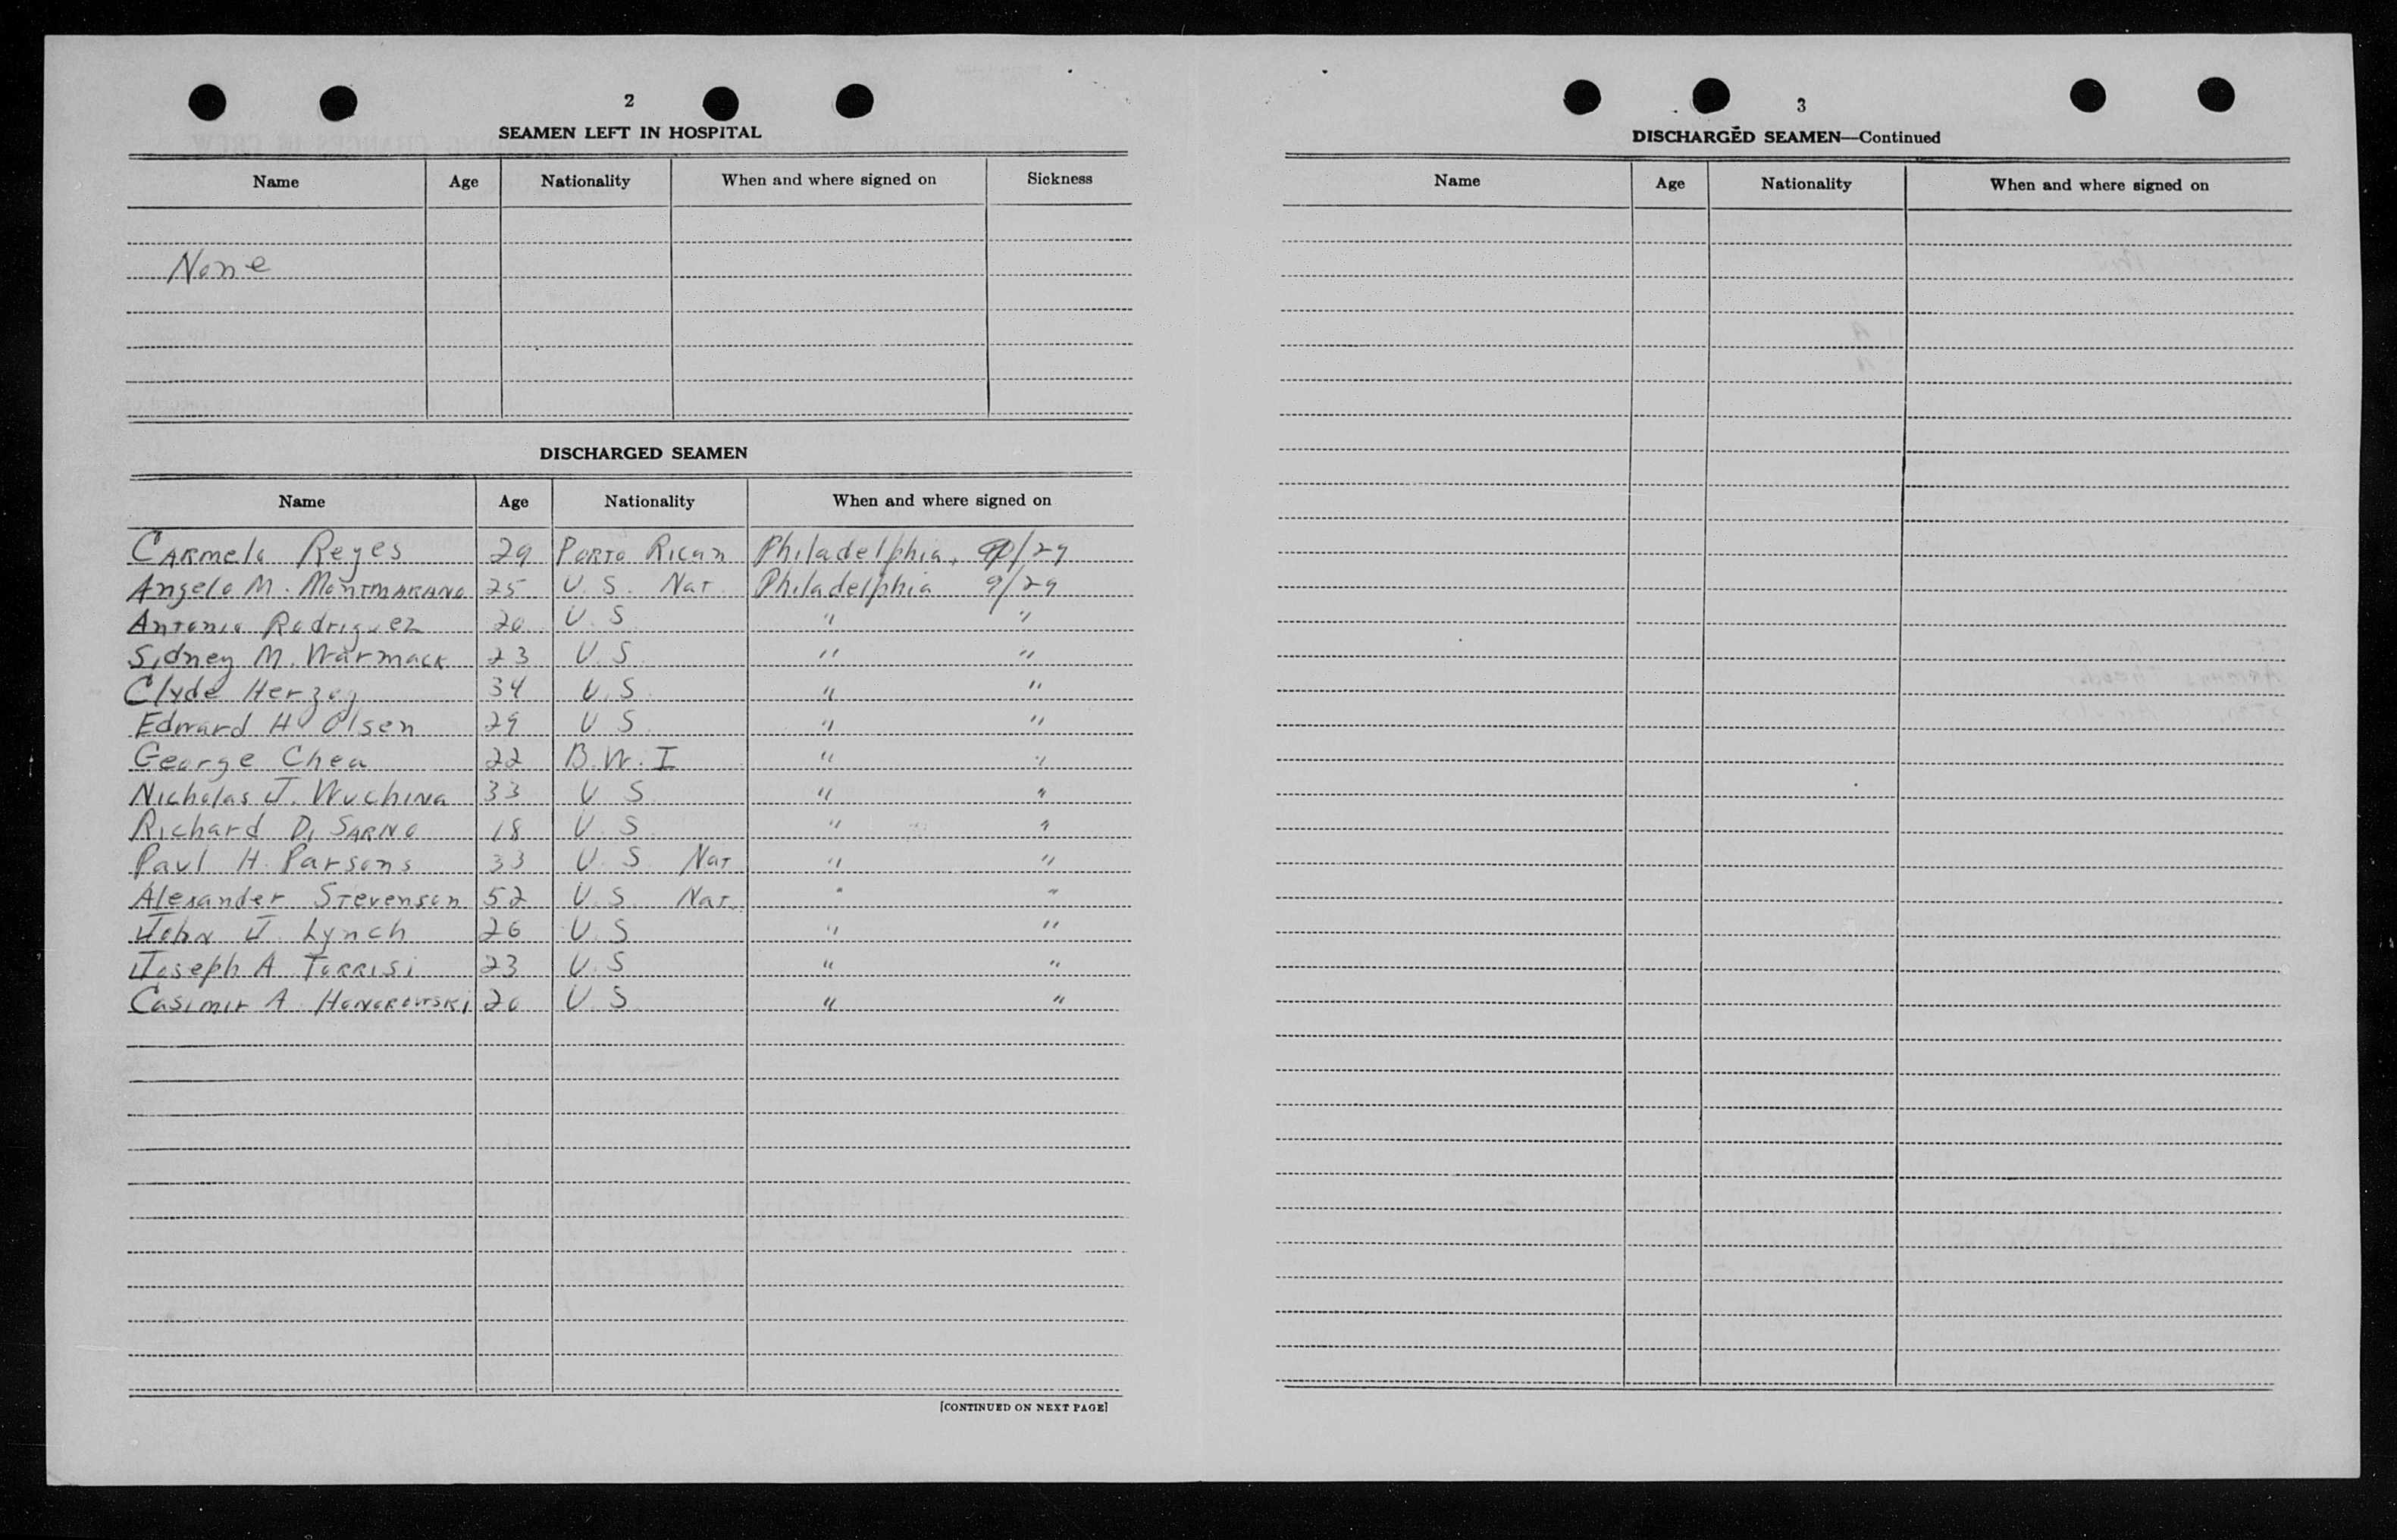 2
SEAMEN LEFT IN HOSPITAL
Name Age Nationality When and where signed on Sickness
None
DISCHARGED SEAMEN
Name Age Nationality When and where signed on
Carmelo Reyes 29 Porto Rican Philadelphia, 9/29
Angelo M. Montmarano 25 U. S. Nat. Philadelphia 9/29
Antonio Rodriguez 20 U. S " "
Sidney M. Warmack 23 U. S. " "
Clyde Herzog 34 U. S. " "
Edward H Olsen 29 U S. " "
George Chea 22 B. W. I " "
Nicholas J. Wuchina 33 U S. " "
Richard Di Sarno 18 U. S. " "
Paul H. Parsons 33 U. S. Nat " "
Alexander Stevenson 52 U. S. Nat. " "
John J. Lynch 26 U. S " "
Joseph A Torrisi 23 U. S " "
Casimir A. 20 U. S. " "
[CONTINUED ON NEXT PAGE]
3
DISCHARGED SEAMEN—Continued
Name Age Nationality When and where signed on